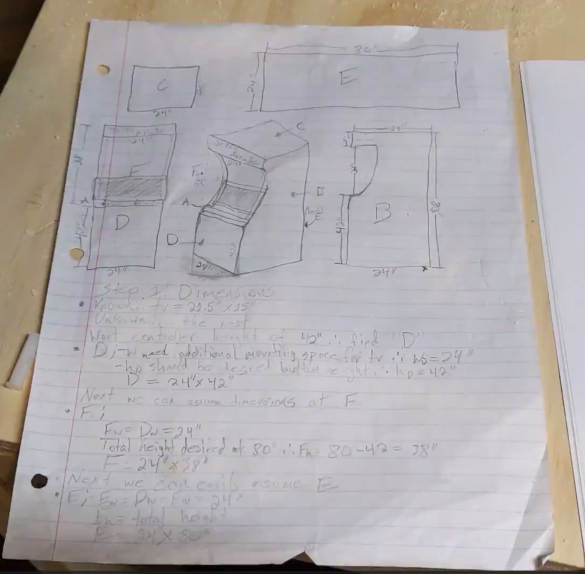 80"
C
E
24"
24"
24"
C
F
B
A
A
D
D
B
24"
24"
24"
Step 1: Dimensions
Known: tv = 21.5" x 15"
Unknown: the rest
Want controller height of 42" ∴ find "D"
D: - need additional mounting space for tv ∴ = 24"
- should be desired height ∴ hD = 42"
D = 24" x 42"
Next we can assume dimensions of F
F:
Fw = Dw = 24"
Total height desired at 80" ∴ Fh = 80-42 = 38"
F = 24" x 38"
Next we can easily assume E
E: Ew = Dw = Fw = 24"
Eh = total height
E = 24 x 80"